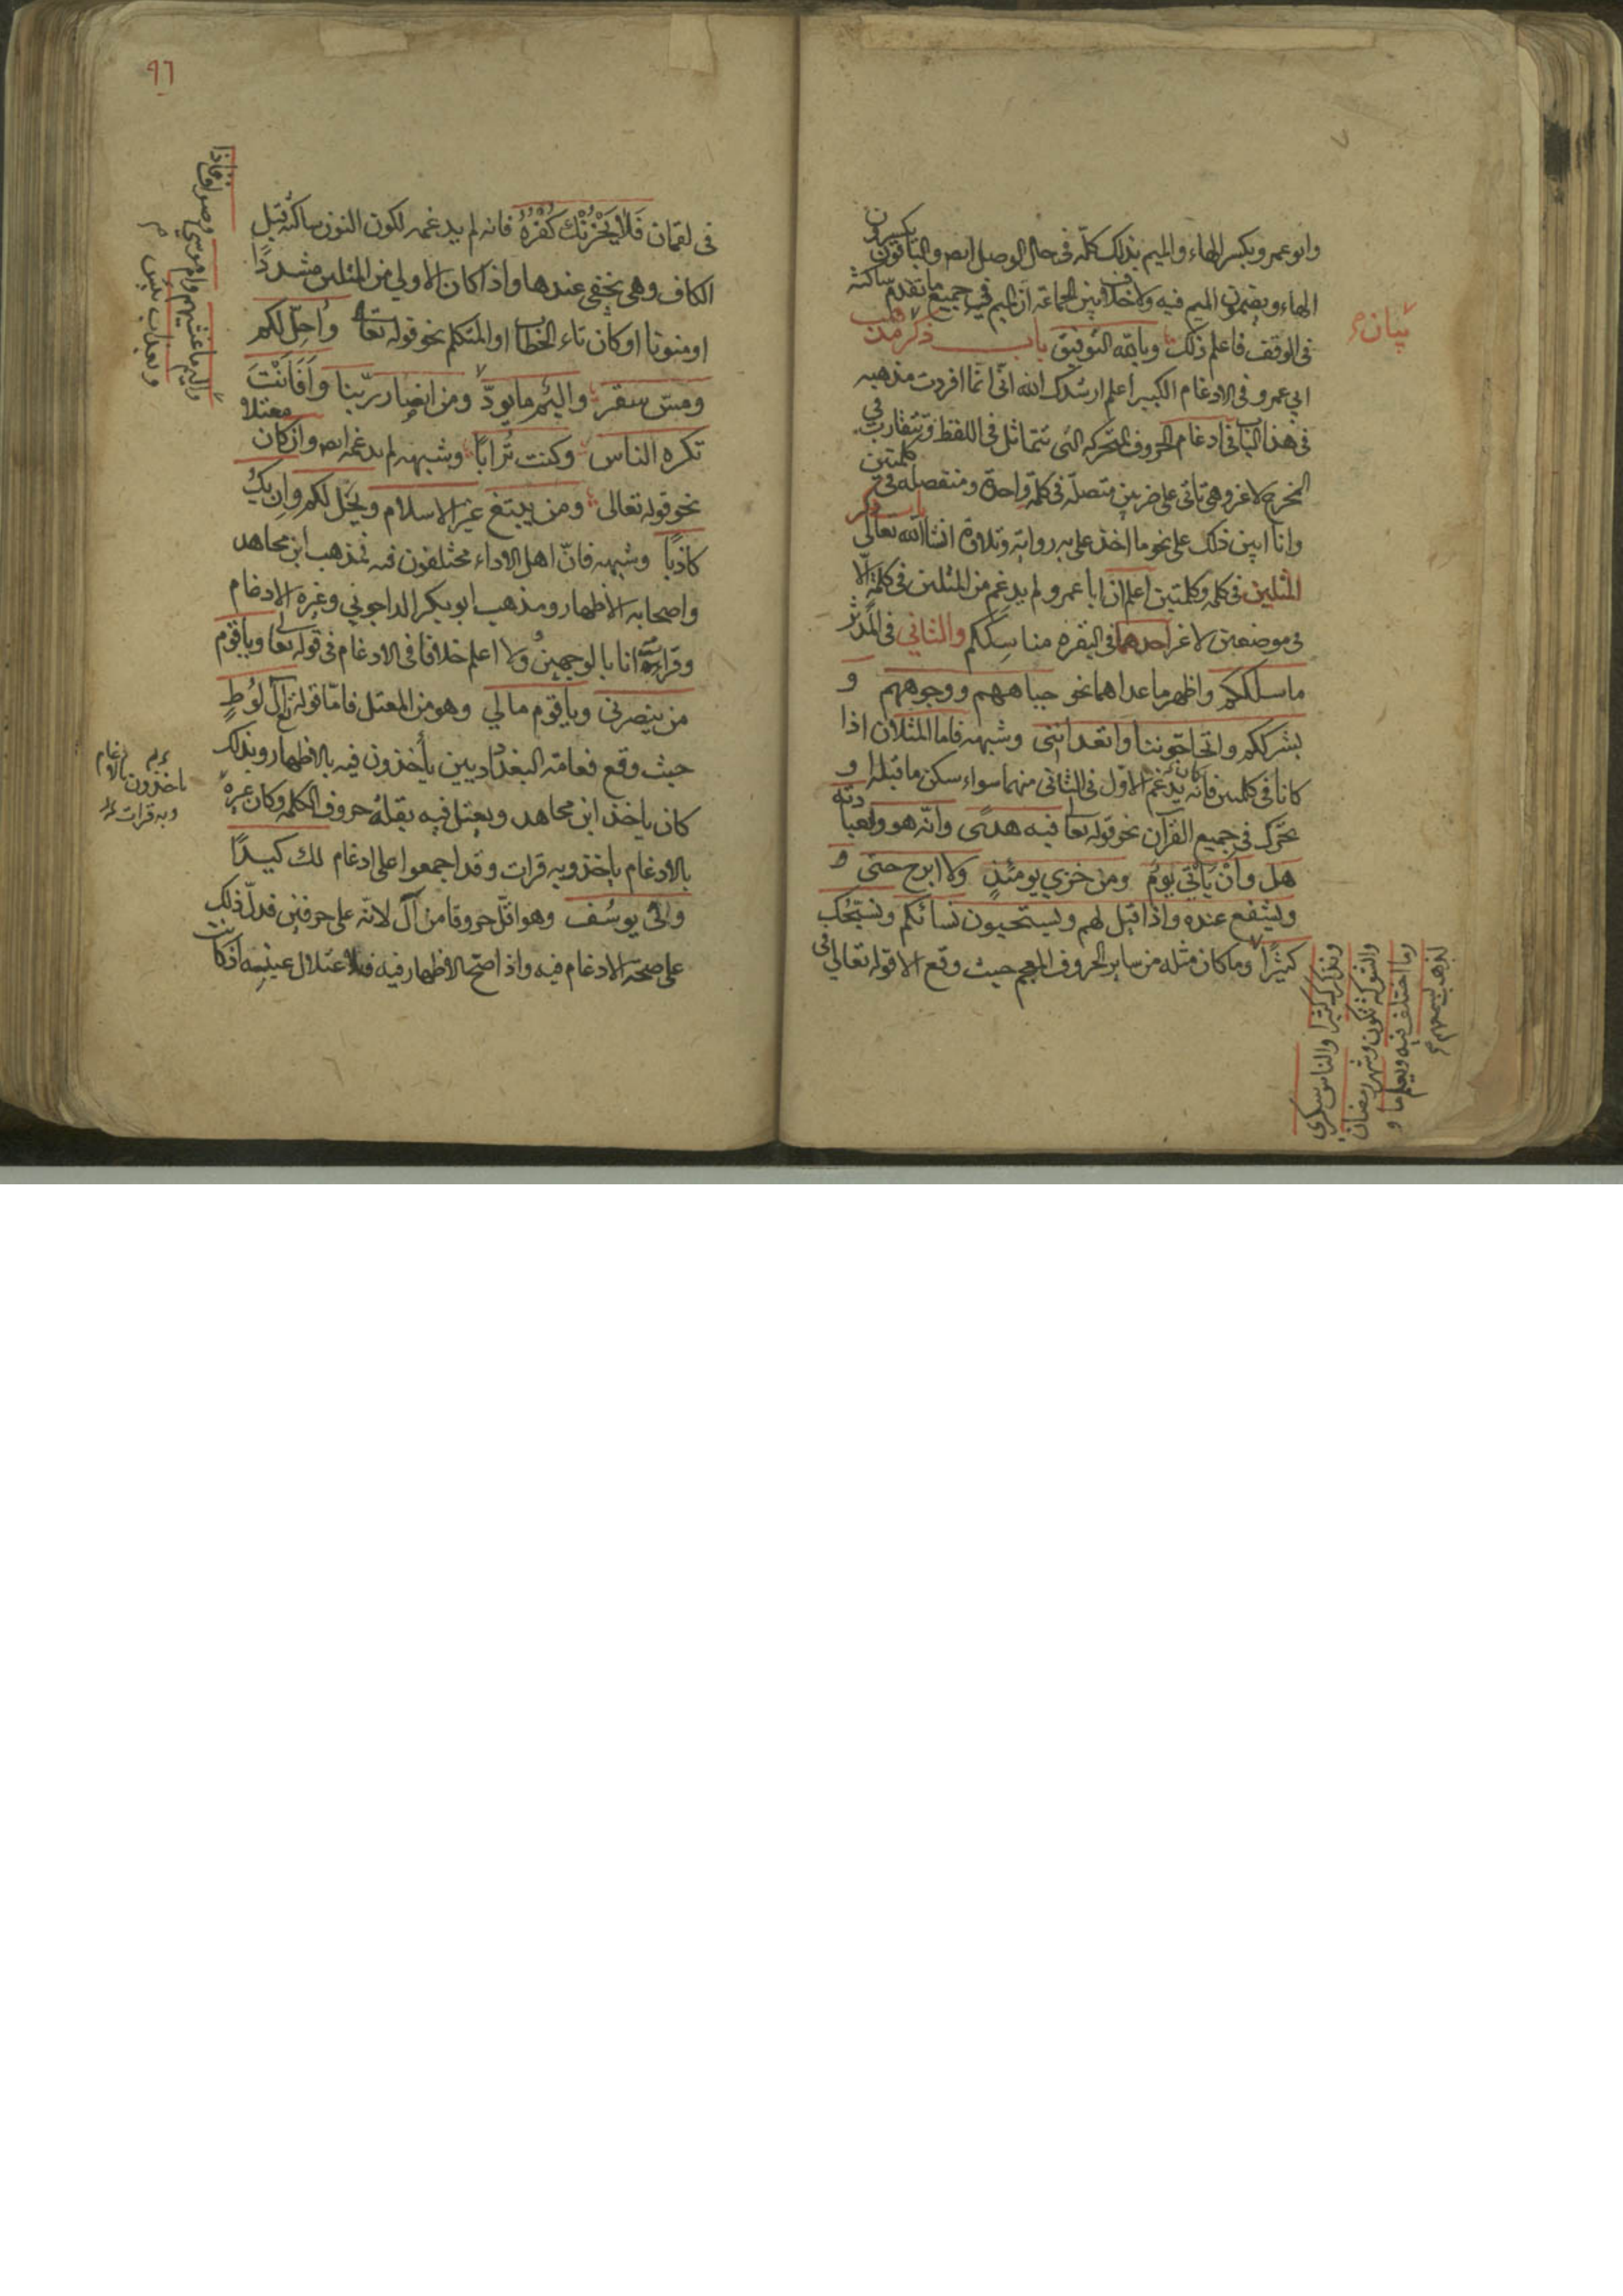 وابو عمرو بكسر الهاء والميم بذلك كله في حال الوصل ايض والباقون يكسرون
الهاء ويضمون الميم فيه ولا خلاف بين الجماعة ان الميم في جميع ما تقدم ساكنة
في الوقف فاعلم ذلك وبالله التوفيق باب ذكر مذهب
ابي عمرو في الادغام الكبير اعلم ارشدك الله اني انما افردت مذهبه
في هذا الباب في ادغام الحروف المتحركة التي تتماثل في اللفظ وتتقارب في
المخرج لا غير وهي تاتي على ضربين متصلة في كلمة واحدة ومنفصلة في كلمتين
وانا ابين ذلك على نحو ما اخذ علي به رواية وتلاوة انشا الله تعالى باب ذكر
المثلين في كلمة وكلمتين اعلم ان ابا عمرو لم يدغم من المثلين في كلمة الا
في موضعين لا غير احدهما في البقرة مناسككم والثاني في المدثر
ما سلككم واظهر ما عداهما نحو جباههم ووجوههم و
بشرككم واتحاجوننا واتعدانني وشبهه فاما المثلان اذا
كانا في كلمتين فانه كان يدغم الاول في الثاني منهما سواء سكن ما قبله او
تحرك في جميع القرآن نحو قوله تعالى فيه هدى وانه هو ولعبادته
هل وان يأتي يوم ومن خزي يومئذ ولا ابرح حتى و
ويشفع عنده واذا قيل لهم ويستحيون نسائكم ونسبحك
كثيرا وما كان مثله من ساير الحروف المعجم حيث وقع الا قوله تعالى في
بيان
ونذكرك كثيرا والناس سكرى
والشوكة تكون وشهر رمضان
وما اختلف فيه ويعلم ما و
لذهب بسمعهم
٩٦
في لقمان فَلَا يَحْزُنْكَ كُفْرُهُ فانه لم يدغمه لكون النون ساكنة قبل
الكاف وهي تخفى عندها واذا كان الاولى من المثلين مشددًا
او منونا او كان تاء الخطاب او المتكلم نحو قوله تعالى وأحل لكم
ومس سقر واليم ما يودّ ومن انصار ربنا وأَفَأَنْتَ
تكره الناس وكنت ترابًا وشبهه لم يدغمه ايض وان كان معتلا
نحو قوله تعالى ومن يبتغ غير الاسلام ويخل لكم وان يك
كاذبًا وشبهه فانّ اهل الاداء مختلفون فيه فمذهب ابن مجاهد
واصحابه الاظهار ومذهب ابو بكر الداجوني وغيره الادغام
وقراءته انا بالوجهين ولا اعلم خلافا في الادغام في قوله تعالى ويا قوم
من ينصرني ويا قوم مالي وهو من المعتل فامّا قوله تع آل لوطٍ
حيث وقع فعامة البغداديين يأخذون فيه بالاظهار وبذلك
كان ياخذ ابن مجاهد ويعتل فيه بقلة حروف الكلمة وكان غيره
بالادغام ياخذ وبه قرات وقد اجمعوا على ادغام لك كيدًا
وفي يوسُف وهو اقلّ حروفا من آل لانه على حرفين فدلّ ذلك
على صحة الادغام فيه واذا صح الاظهار فيه فلاعتلال عينه اذ كانت